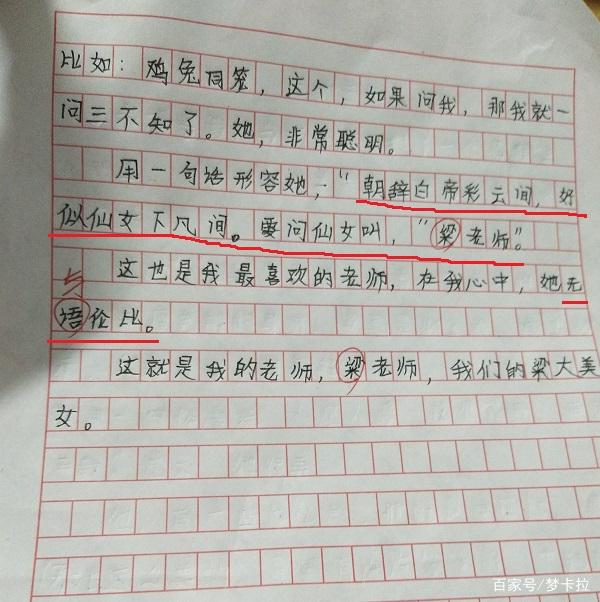 比如：鸡兔同笼，这个，如果问我，那我就一
问三不知了。她，非常聪明。
用一句话形容她，“朝辞白帝彩云间，好
似仙女下凡间。要问仙女叫，“梁老师”。
这也是我最喜欢的老师，在我心中，她无
与
语伦比。
这就是我的老师，梁老师，我们的梁大美
女。
百家号/梦卡拉